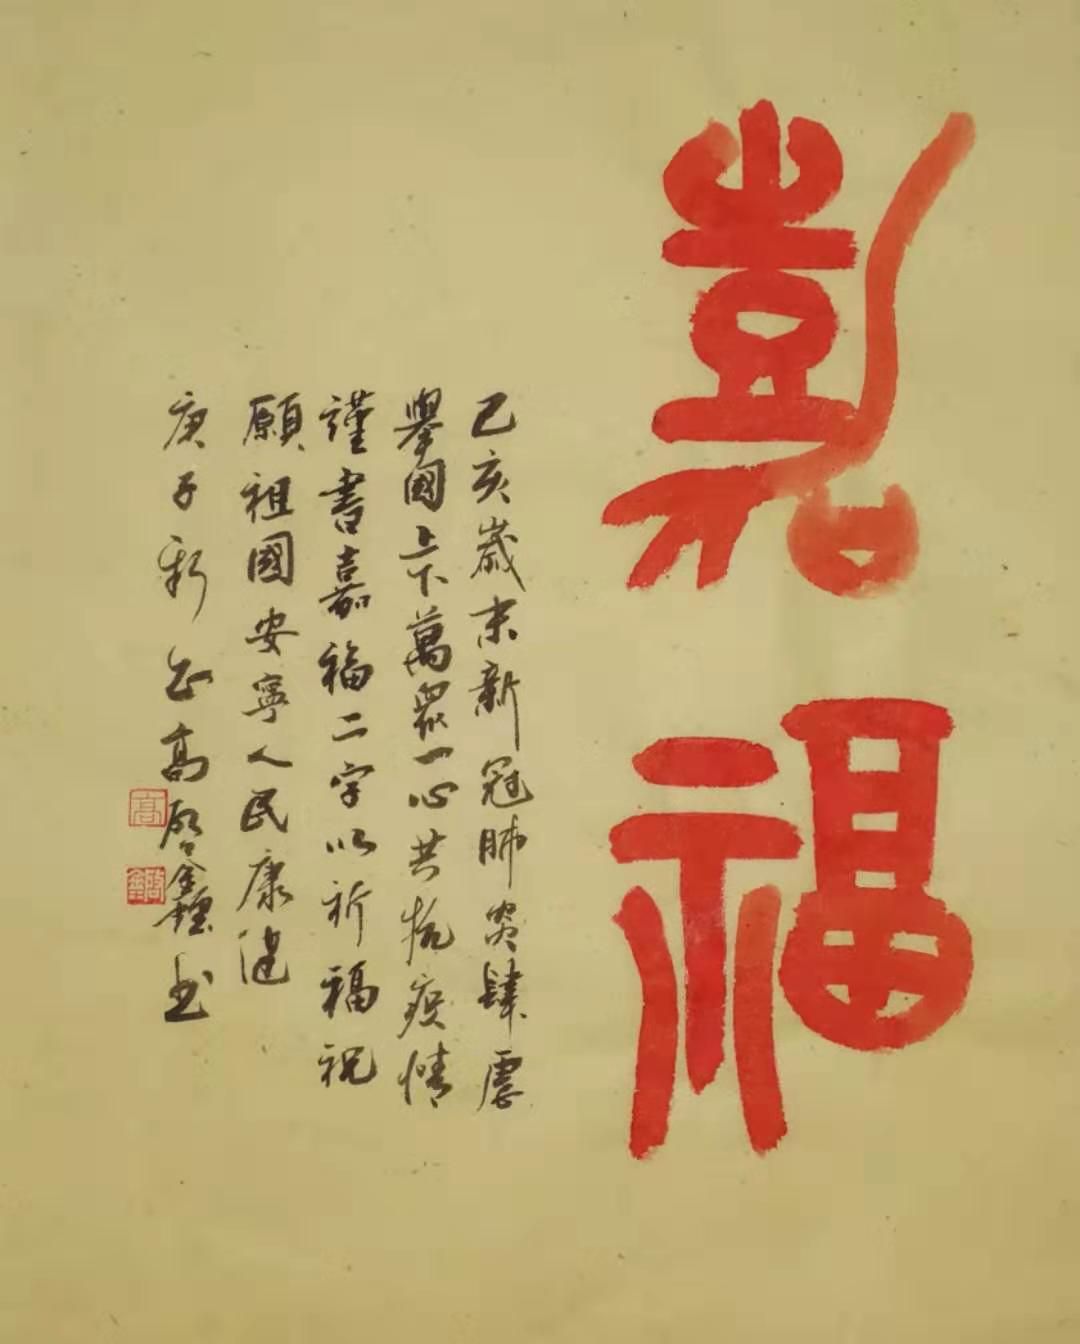 嘉福
己亥歲末新冠肺炎肆虐
舉國上下萬眾一心共抗疫情
謹書嘉福二字以祈福祝
願祖國安寧人民康健
庚子新正高啓鑫書
高